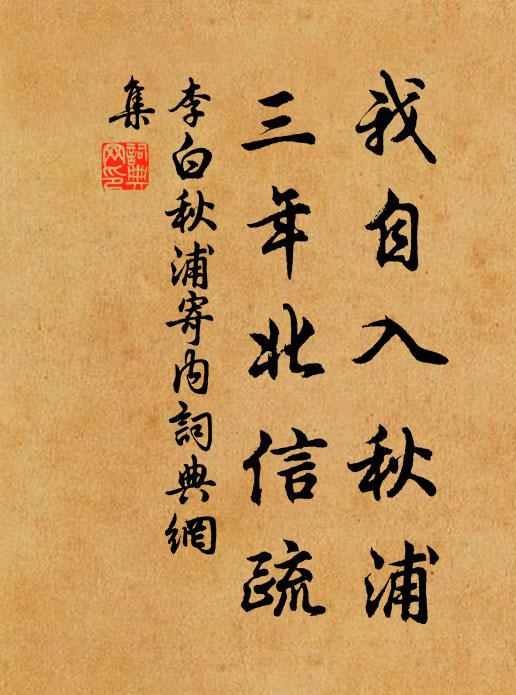 我自入秋浦
三年北信疏
李白秋浦寄内詞典網
集
詞典網印